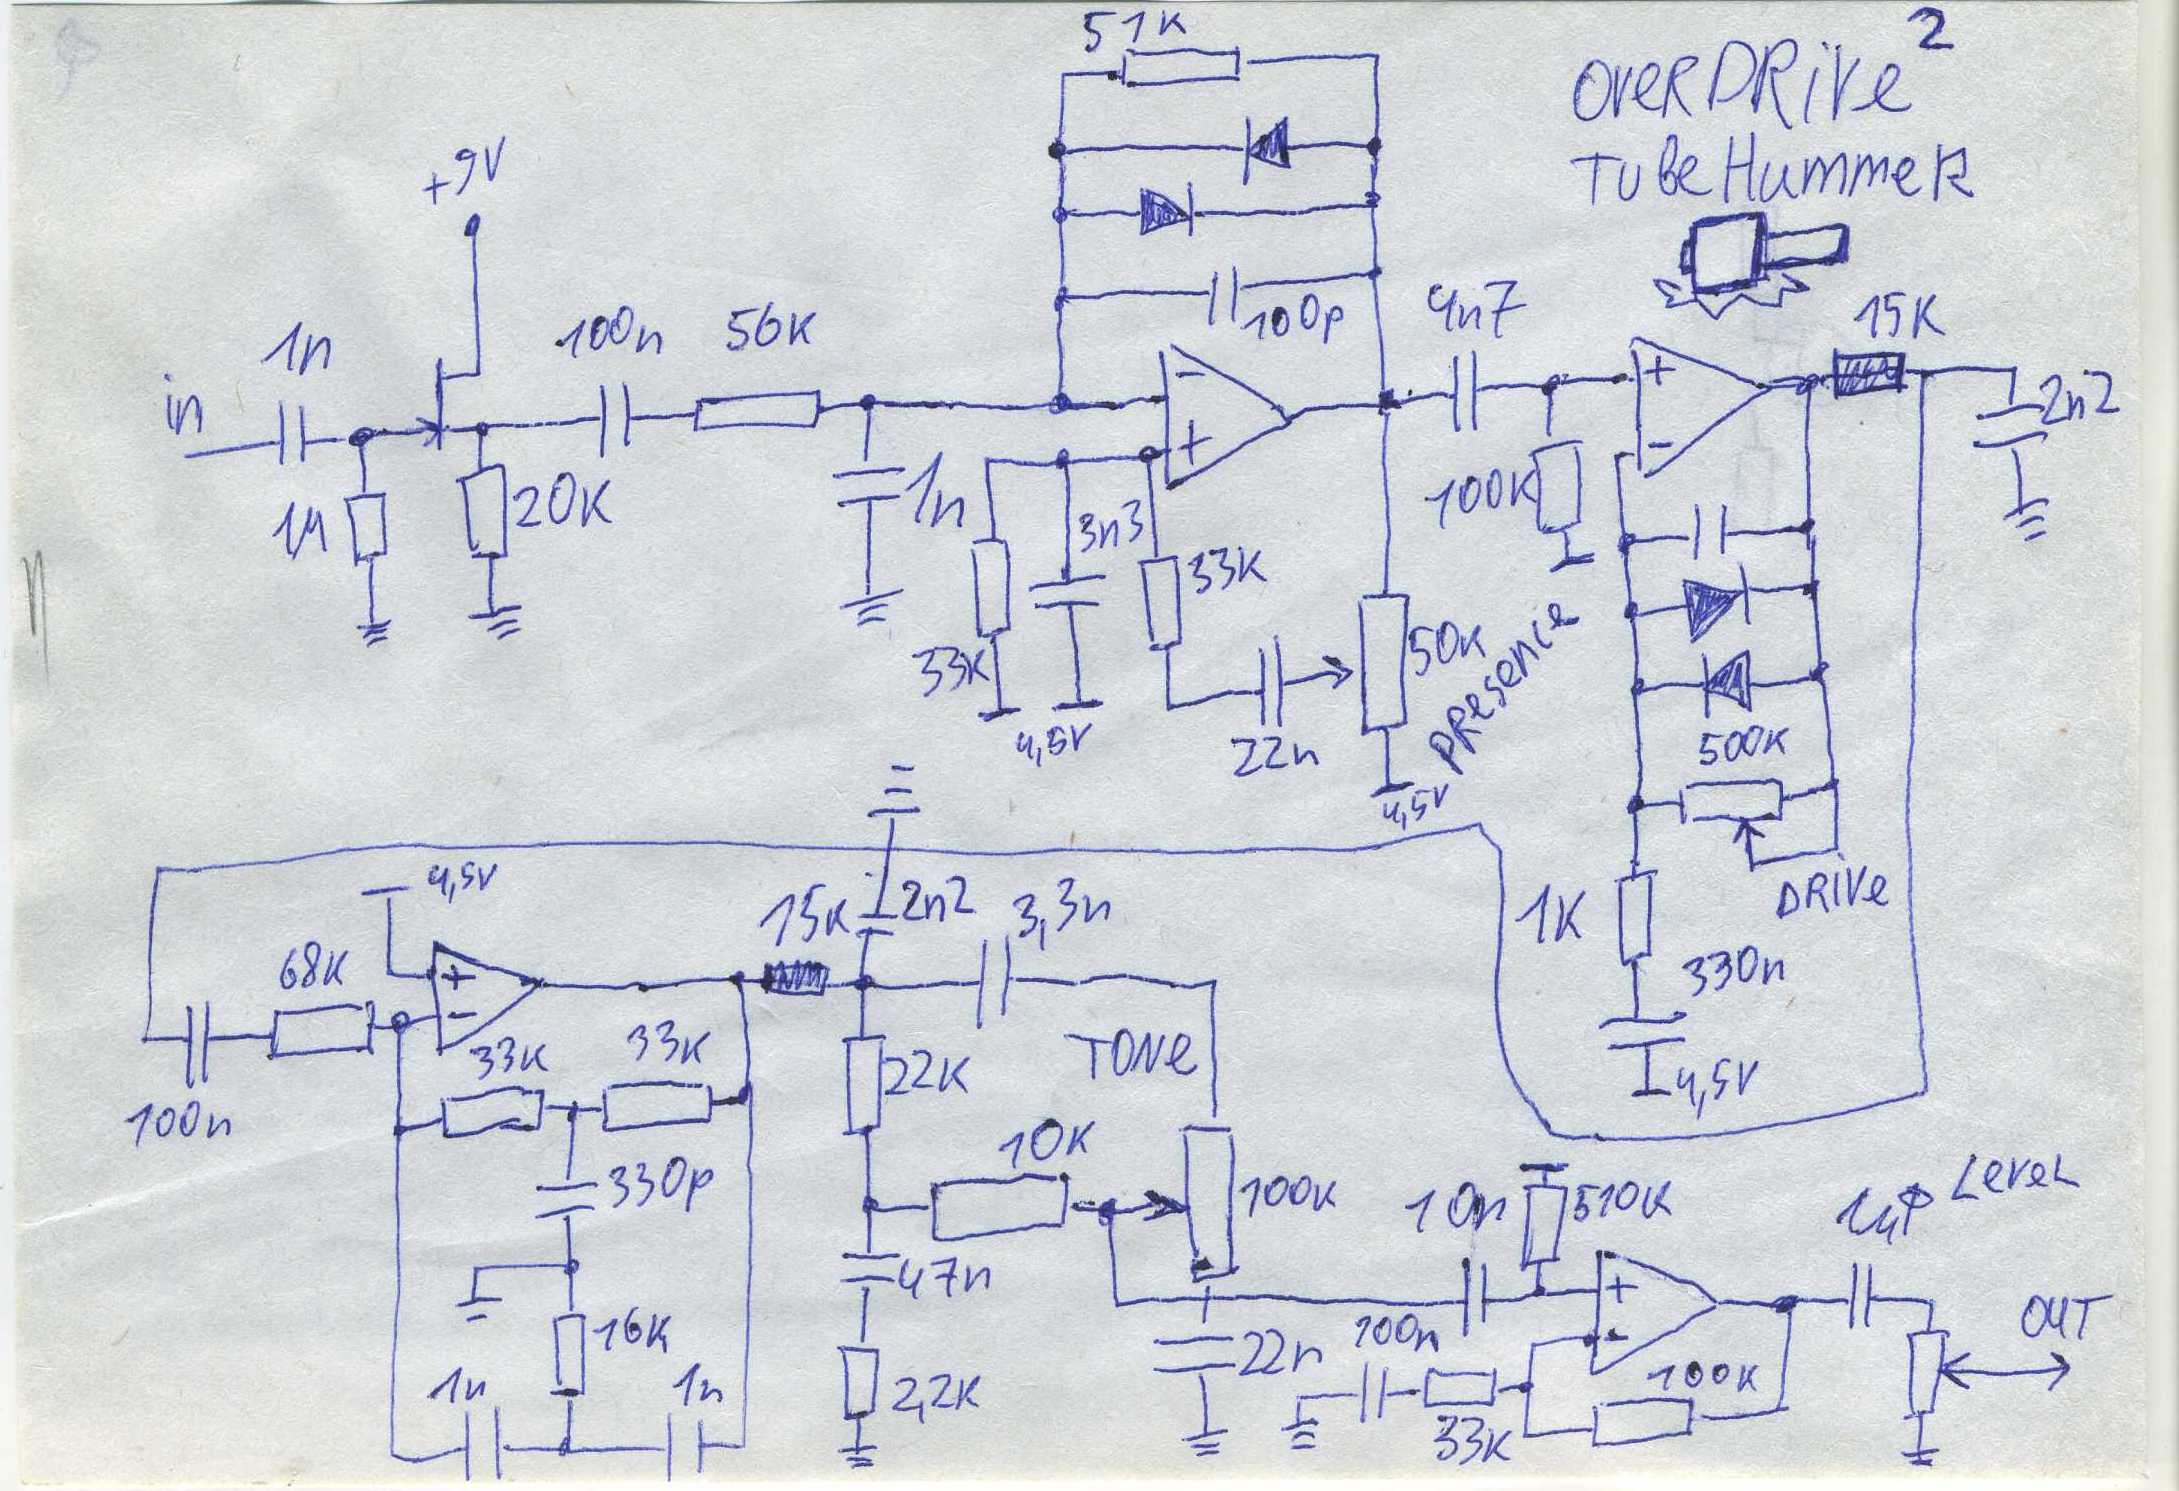 OVERDRIVE 2
TUBE HUMMER
51K
+9V
in
1n
1M
20K
100n
56K
1n
100p
33K
3n3
33K
4,5V
22n
4n7
100K
50K
PRESENCE
4,5V
15K
2n2
500K
DRIVE
1K
330n
4,5V
4,5V
68K
100n
33K
33K
330p
16K
1n
1n
15K
2n2
3,3n
22K
TONE
10K
100K
47n
2,2K
22n
10n
510K
100n
33K
100K
LEVEL
OUT